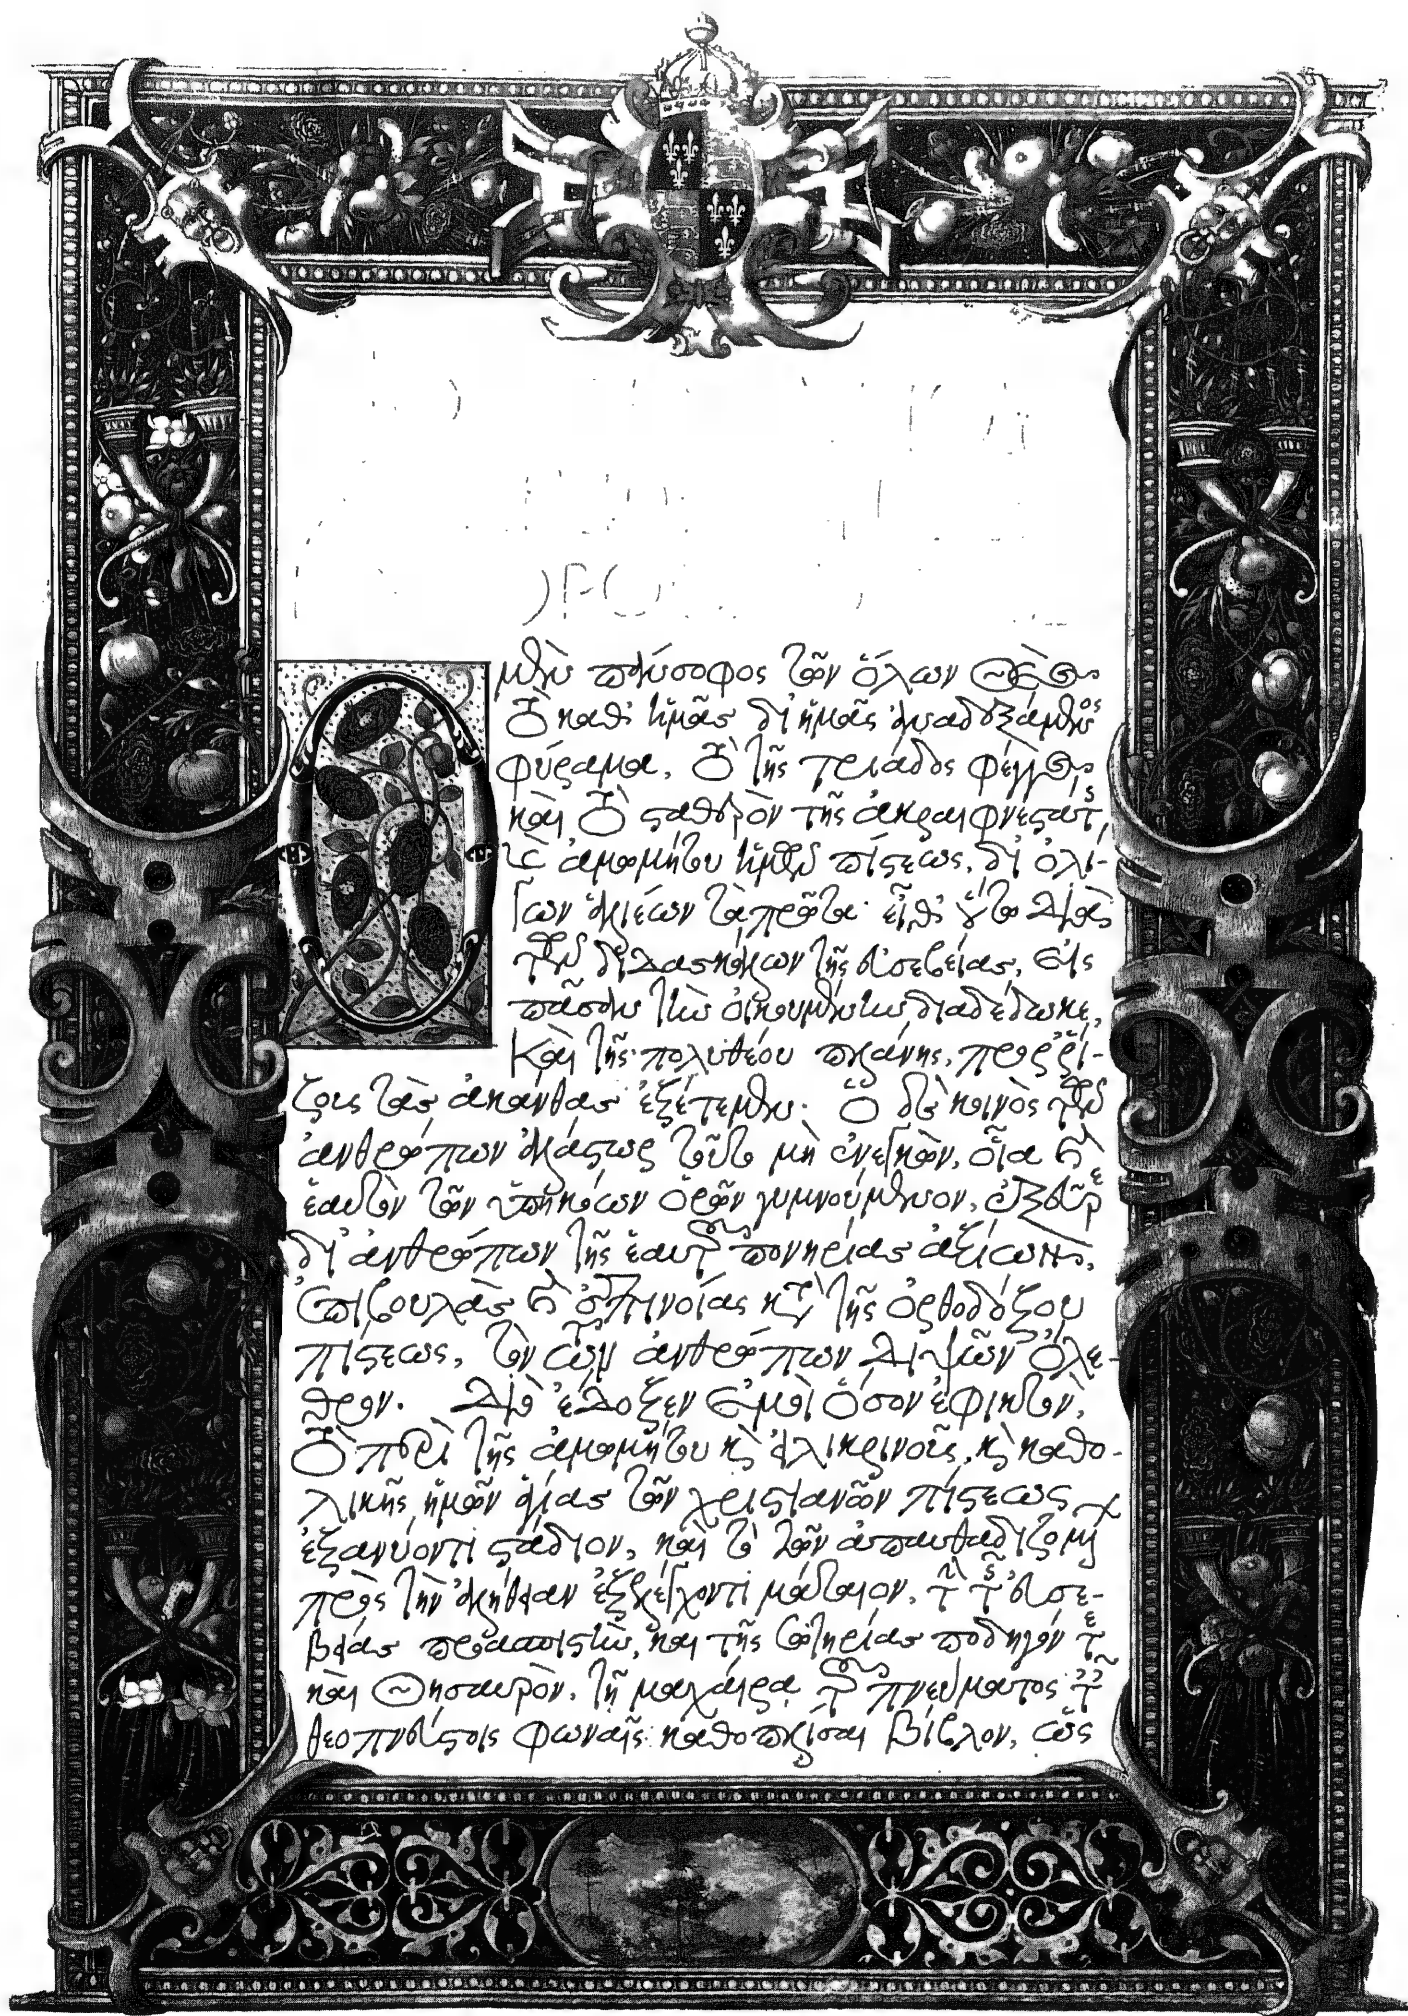 Ὁ μὲν πάνσοφος τῶν ὅλων Θεὸς
ὁ καθ' ἡμᾶς δι' ἡμᾶς ἀναδεξάμενος
φύραμα, τὸ τῆς τριάδος φέγγος
καὶ τὸ σταθερὸν τῆς ἀκραιφνεστάτης
ἀμωμήτου ἡμῶν πίστεως, δι' ὀλί-
γων ἁλιέων τὰ πρῶτα· εἶθ' οὕτω διὰ
τῶν διδασκάλων τῆς εὐσεβείας, εἰς
πᾶσαν τὴν οἰκουμένην διαδέδωκε,
καὶ τῆς πολυθέου πλάνης, προρρί-
ζους τὰς ἀκάνθας ἐξέτεμεν. Ὁ δὲ κοινὸς τῶν
ἀνθρώπων ἀλάστωρ τοῦτο μὴ ἐνεγκὼν, οἷα
ἑαυτὸν τῶν ὑπηκόων ὁρῶν γυμνούμενον, ἐξεῦρε
δι' ἀνθρώπων τῆς ἑαυτοῦ πονηρίας ἀξίων,
ἐπιβουλὰς καὶ ἐπινοίας κατὰ τῆς ὀρθοδόξου
πίστεως, τὸν τῶν ἀνθρώπων διψῶν ὄλε-
θρον. Διὸ ἔδοξεν ἐμοὶ ὅσον ἐφικτὸν,
τὸ περὶ τῆς ἀμωμήτου καὶ εἰλικρινοῦς, καὶ καθο-
λικῆς ἡμῶν ἁγίας τῶν χριστιανῶν πίστεως
ἐξανύοντι στάδιον, καὶ τὸ τῶν ἀπαυθαδιζομένων
πρὸς τὴν ἀλήθειαν ἐξελέγχοντι μάταιον, τὸν τῆς εὐσε-
βείας προασπιστὴν, καὶ τῆς σωτηρίας ποδηγόν τε
καὶ θησαυρὸν, τῇ μαχαίρᾳ τοῦ πνεύματος
θεοπνεύστοις φωναῖς καθοπλίσαι βίβλον, ὡς